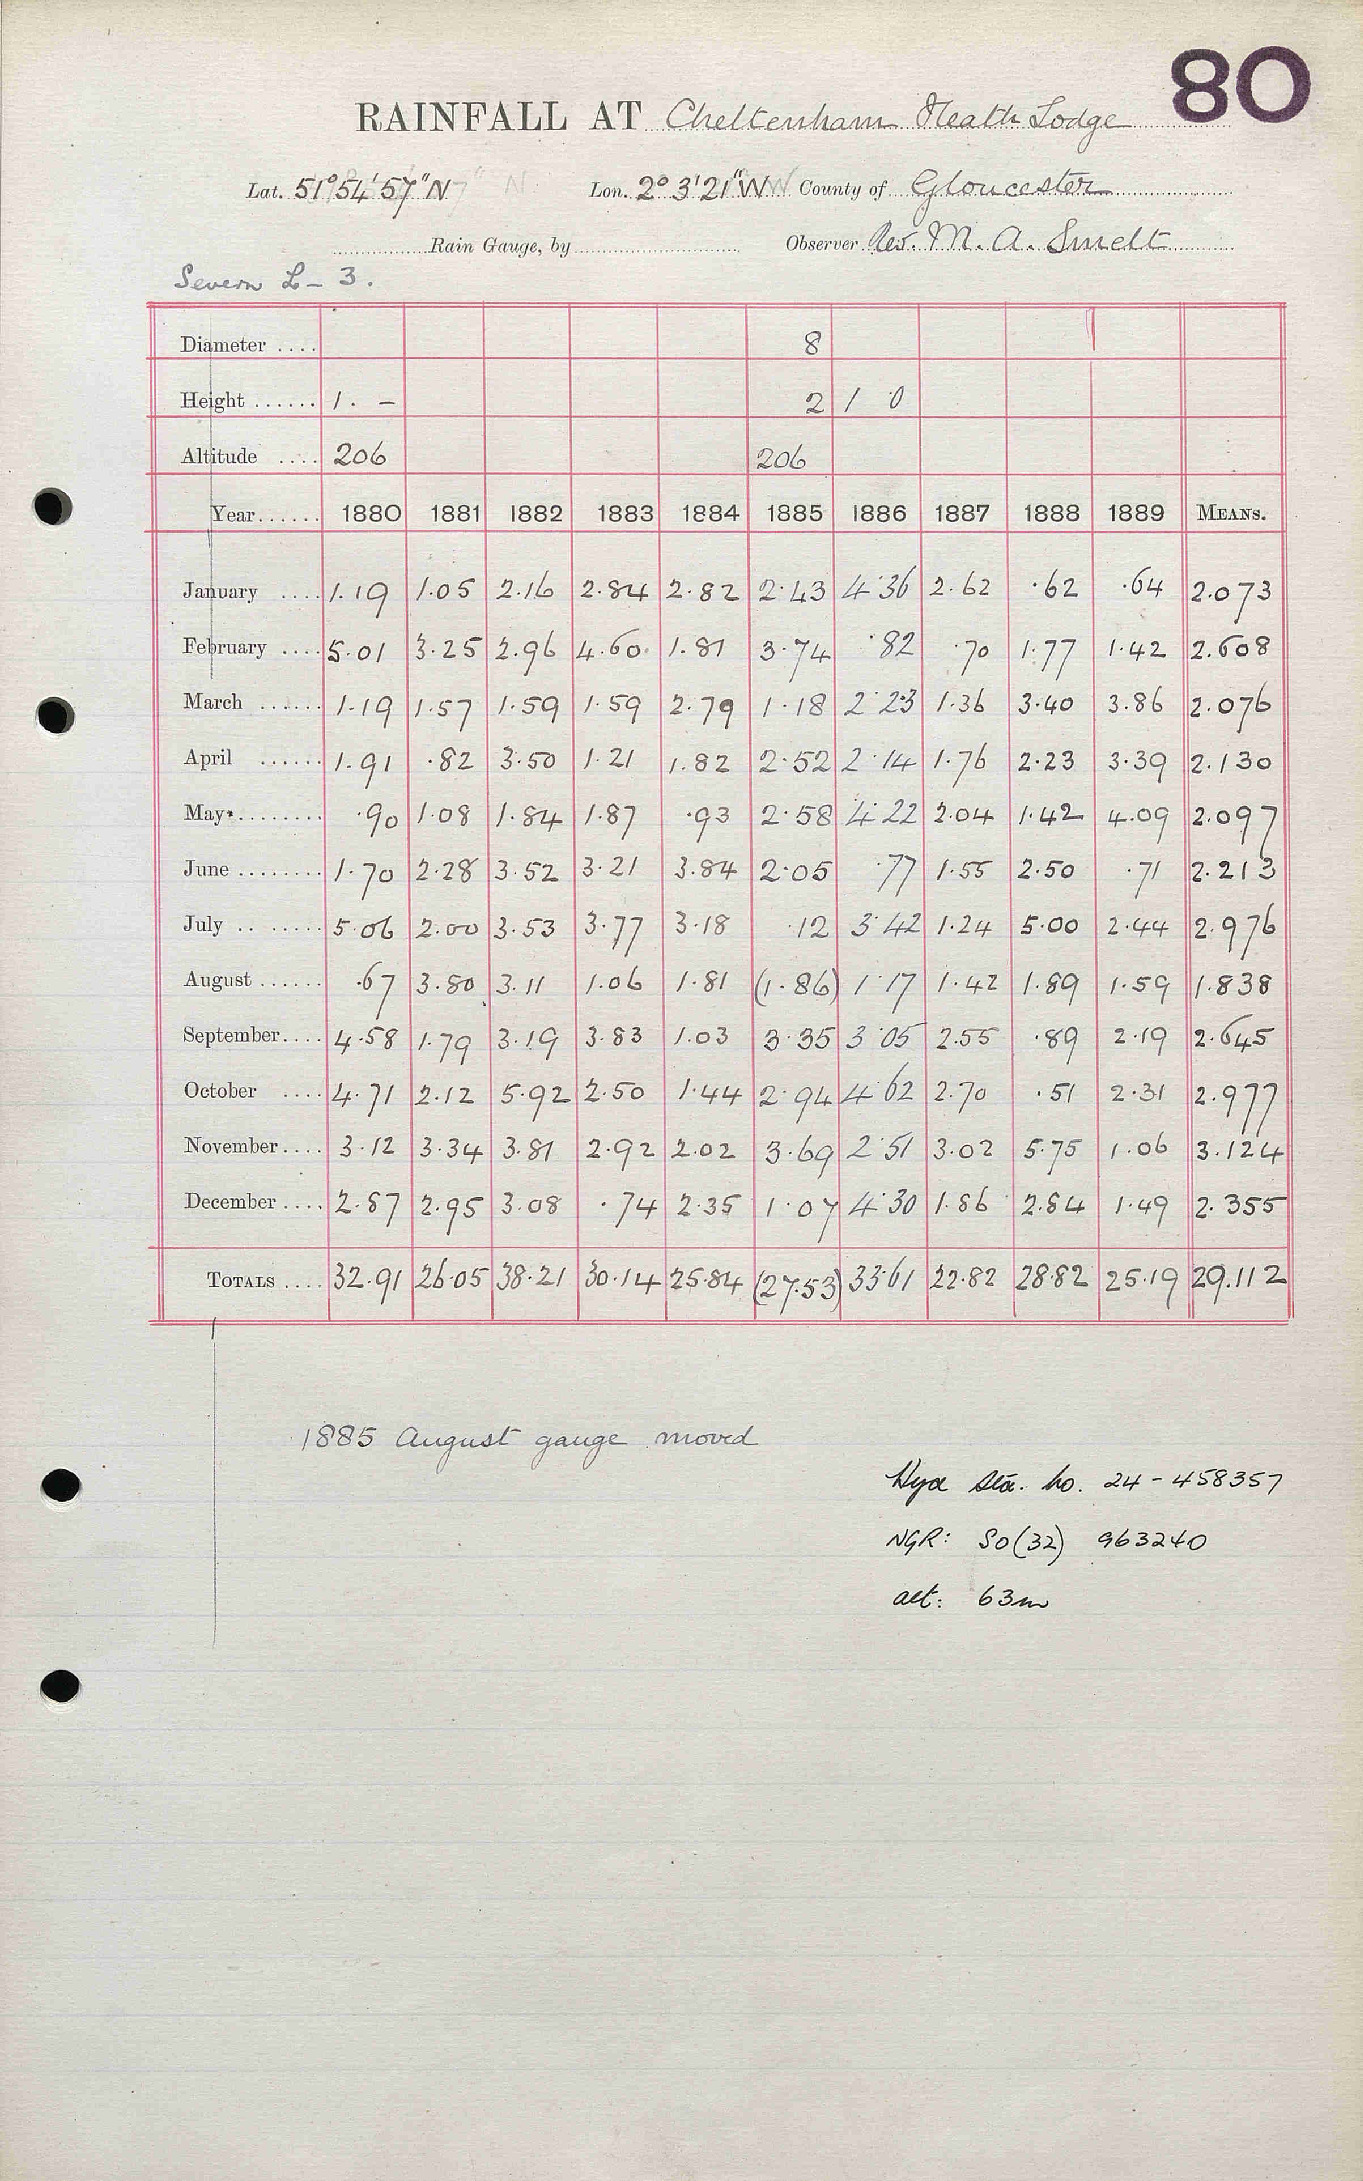 80
RAINFALL AT Cheltenham Heath Lodge
Lat. 51°54'57"N Lon. 2°3'21"W County of Gloucester
Rain Gauge, by Observer Rev. M. A. Smelt
Severn L - 3.
Diameter .... 8
Height ...... 1. - 2 1 0
Altitude .... 206 206
Year...... 1880 1881 1882 1883 1884 1885 1886 1887 1888 1889 MEANS.
January .... 1.19 1.05 2.16 2.84 2.82 2.43 4.36 2.62 .62 .64 2.073
February .... 5.01 3.25 2.96 4.60 1.81 3.74 .82 .70 1.77 1.42 2.608
March ...... 1.19 1.57 1.59 1.59 2.79 1.18 2.23 1.36 3.40 3.86 2.076
April ...... 1.91 .82 3.50 1.21 1.82 2.52 2.14 1.76 2.23 3.39 2.130
May ........ .90 1.08 1.84 1.87 .93 2.58 4.22 2.04 1.42 4.09 2.097
June ........ 1.70 2.28 3.52 3.21 3.84 2.05 .77 1.55 2.50 .71 2.213
July .. ..... 5.06 2.00 3.53 3.77 3.18 .12 3.42 1.24 5.00 2.44 2.976
August ...... .67 3.80 3.11 1.06 1.81 (1.86) 1.17 1.42 1.89 1.59 1.838
September.... 4.58 1.79 3.19 3.83 1.03 3.35 3.05 2.55 .89 2.19 2.645
October .... 4.71 2.12 5.92 2.50 1.44 2.94 4.62 2.70 .51 2.31 2.977
November.... 3.12 3.34 3.81 2.92 2.02 3.69 2.51 3.02 5.75 1.06 3.124
December .... 2.87 2.95 3.08 .74 2.35 1.07 4.30 1.86 2.84 1.49 2.355
TOTALS .... 32.91 26.05 38.21 30.14 25.84 (27.53) 33.61 22.82 28.82 25.19 29.112
1885 August gauge moved
Hyd Sta. No. 24-458357
NGR: SO(32) 963240
alt: 63m